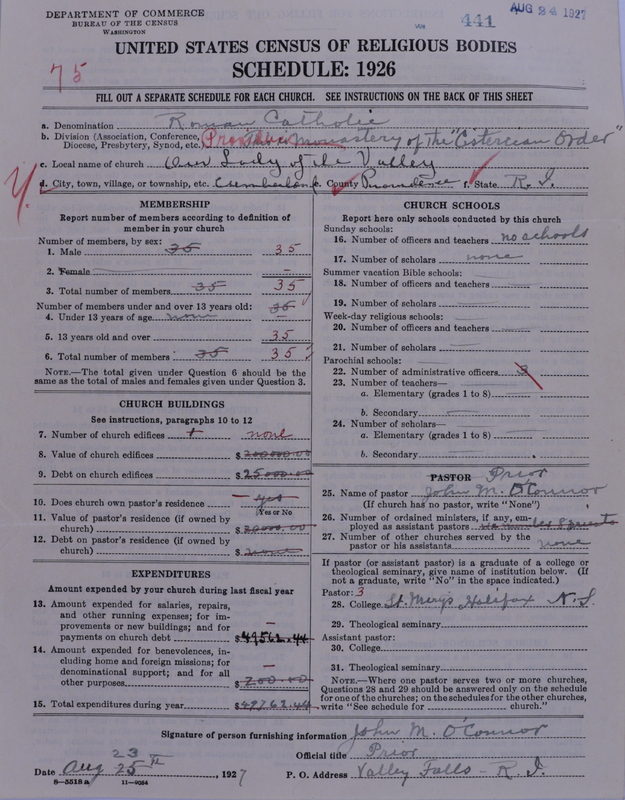 DEPARTMENT OF COMMERCE
BUREAU OF THE CENSUS
WASHINGTON
441
AUG 24 1927
UNITED STATES CENSUS OF RELIGIOUS BODIES
SCHEDULE: 1926
75
FILL OUT A SEPARATE SCHEDULE FOR EACH CHURCH. SEE INSTRUCTIONS ON THE BACK OF THIS SHEET
a. Denomination Roman Catholic
b. Division (Association, Conference, Diocese, Presbytery, Synod, etc.) Monastery of the "Cistercian Order"
c. Local name of church Our Lady of the Valley
d. City, town, village, or township, etc. Cumberland e. County Providence f. State R. I.
MEMBERSHIP
Report number of members according to definition of
member in your church
Number of members, by sex:
1. Male 35 35
2. Female —
3. Total number of members 35 35
Number of members under and over 13 years old: 35
4. Under 13 years of age none —
5. 13 years old and over 35
6. Total number of members 35 35
NOTE.—The total given under Question 6 should be
same as the total of males and females given under Question 3.
CHURCH BUILDINGS
See instructions, paragraphs 10 to 12
7. Number of church edifices none
8. Value of church edifices $200000.00
9. Debt on church edifices $25000.00
10. Does church own pastor's residence yes
Yes or No
11. Value of pastor's residence (if owned by
church) $
12. Debt on pastor's residence (if owned by
church) $none
EXPENDITURES
Amount expended by your church during last fiscal year
13. Amount expended for salaries, repairs,
and other running expenses; for im-
provements or new buildings; and for
payments on church debt $49562.44
14. Amount expended for benevolences,
including home and foreign missions; for
denominational support; and for all
other purposes $200.00
15. Total expenditures during year $49762.44
CHURCH SCHOOLS
Report here only schools conducted by this church
Sunday schools:
16. Number of officers and teachers no schools
17. Number of scholars none
Summer vacation Bible schools:
18. Number of officers and teachers
19. Number of scholars
Week-day religious schools:
20. Number of officers and teachers
21. Number of scholars
Parochial schools:
22. Number of administrative officers
23. Number of teachers—
a. Elementary (grades 1 to 8)
b. Secondary
24. Number of scholars—
a. Elementary (grades 1 to 8)
b. Secondary
PASTOR Prior
25. Name of pastor John M. O'Connor
(If church has no pastor, write "None")
26. Number of ordained ministers, if any, em-
ployed as assistant pastors
27. Number of other churches served by the
pastor or his assistants none
If pastor (or assistant pastor) is a graduate of a college or
theological seminary, give name of institution below. (If
not a graduate, write "No" in the space indicated.)
Pastor: 3
28. College St. Marys Halifax N. S.
29. Theological seminary
Assistant pastor:
30. College
31. Theological seminary
NOTE.—Where one pastor serves two or more churches,
Questions 28 and 29 should be answered only on the schedule
for one of the churches; on the schedules for the other churches,
write "See schedule for church."
Signature of person furnishing information John M. O'Connor
Official title Prior
Date Aug 23 25th, 1927 P. O. Address Valley Falls - R. I.
8—5518a 11—9064